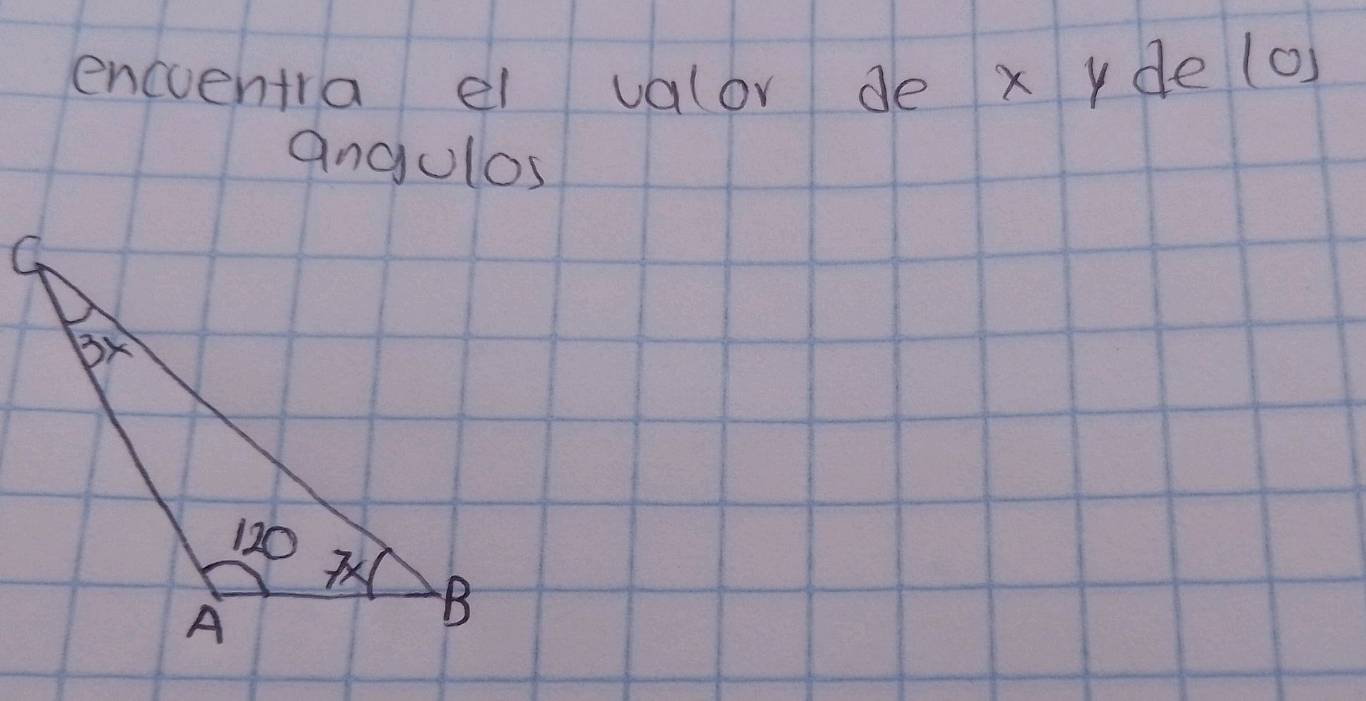 encuentra el valor de x y de los
angulos
C
3x
120
7x
A
B